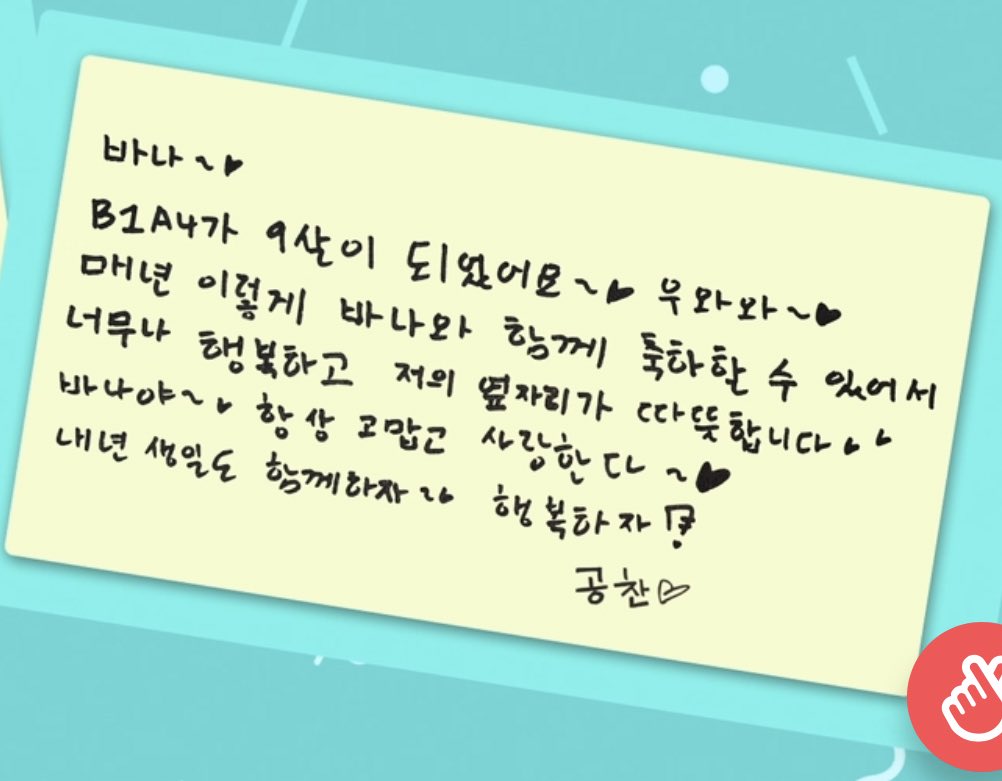 바나~♥
B1A4가 9살이 되었어요~♥ 우와와~♥
매년 이렇게 바나와 함께 축하할 수 있어서
너무나 행복하고 저의 옆자리가 따뜻합니다♥♥
바나야~♥ 항상 고맙고 사랑한다~♥
내년 생일도 함께하자~♥ 행복하자!
공찬♡